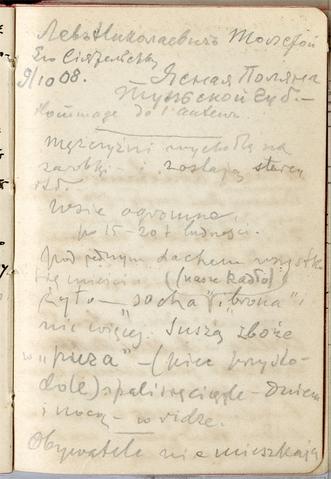 Левъ Николаевичъ Толстой
Его Сіятельству
9/10 08. Ясная Поляна
Тульской Губ. —
Hommage de l'auteur
Mężczyźni wychodzą na
zarobki i zostają starcy
itd.
Wsie ogromne,
po 15-20 t ludności.
Pod jednym dachem wszystko
się mieści (nasze Radło)
Żyto — socha", "brona" i
nic więcej. Suszą zboże
w "
— (piec
dole) spali się ciągle — Dniem
i nocą — w
Obywatele nie mieszkają